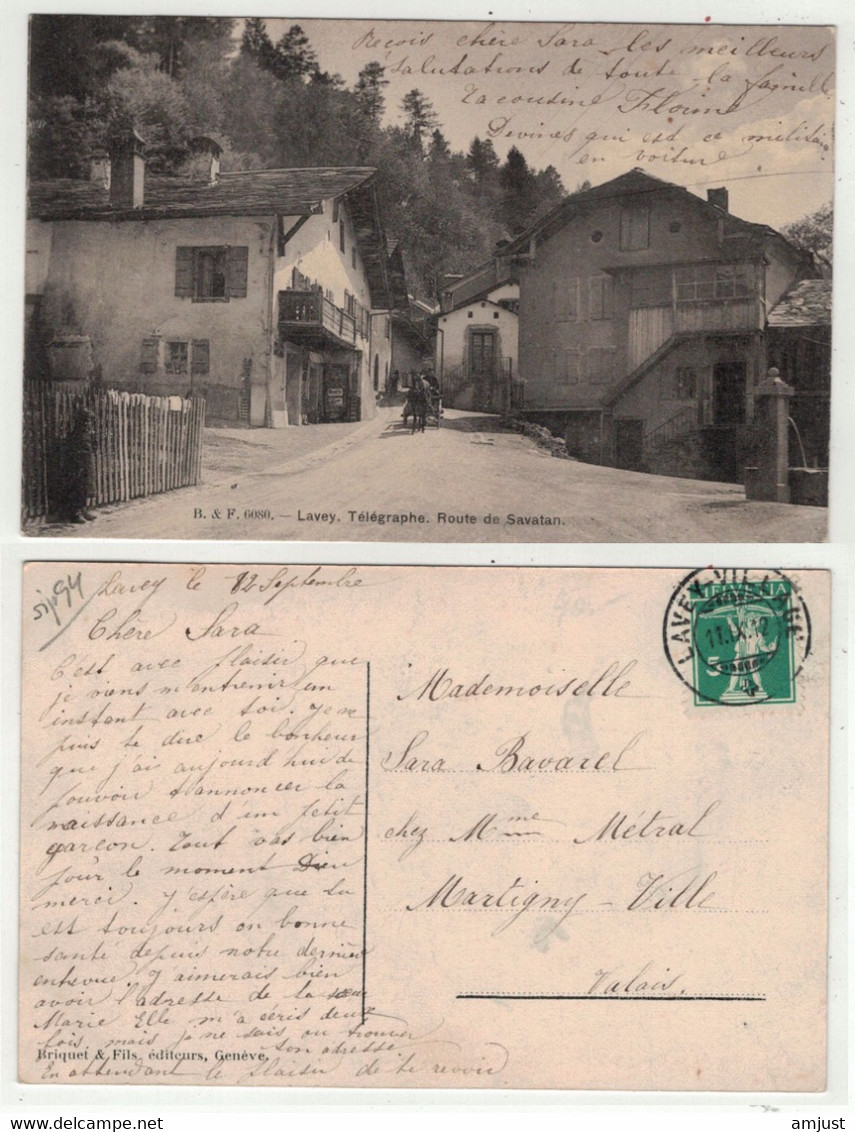 Reçois chère Sara les meilleurs
salutations de toute la famille
Ta cousine
Devines qui est ce militaire
en voiture
B. & F. 6080. — Lavey. Télégraphe. Route de Savatan.
Lavey le 12 Septembre
Chère Sara
C'est avec plaisir que
je viens m'entrenir un
instant avec toi. Je ne
puis te dire le bonheur
que j'ais aujourd'hui de
pouvoir t'annoncer la
naissance d'un petit
garcon. Tout vas bien
pour le moment Dieu
merci. J'espère que tu
est toujours en bonne
santé depuis notre dernière
entrevue J'aimerais bien
avoir l'adresse de ta sœur
Marie Elle m'a ecris deux
fois mais je ne sais ou trouver
son adresse.
En attendant le plaisir de te revoir
Briquet & Fils, éditeurs, Genève.
HELVETIA
5
LAVEY-VILLAGE
11.IX.12
Mademoiselle
Sara Bavarel
chez Mme Métral
Martigny-Ville
Valais.
delcampe.net
amjust